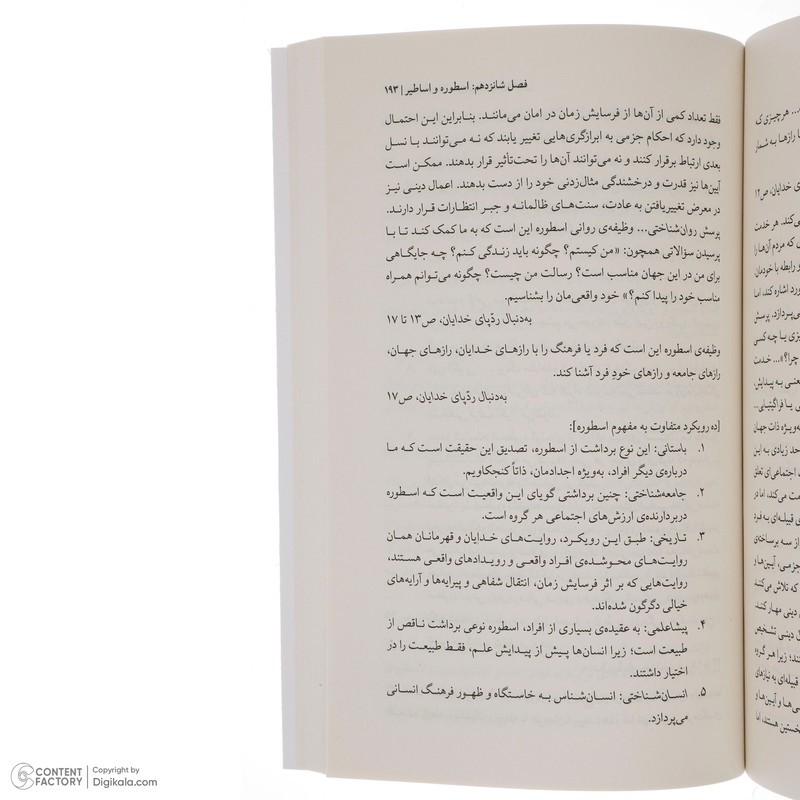 فصل شانزدهم: اسطوره و اساطیر | ۱۹۳
فقط تعداد کمی از آن‌ها از فرسایش زمان در امان می‌مانند. بنابراین این احتمال
وجود دارد که احکام جزمی به ابرازگری‌هایی تغییر یابند که نه می‌توانند با نسل
بعدی ارتباط برقرار کنند و نه می‌توانند آن‌ها را تحت‌تأثیر قرار بدهند. ممکن است
آیین‌ها نیز قدرت و درخشندگی مثال‌زدنی خود را از دست بدهند. اعمال دینی نیز
در معرض تغییریافتن به عادت، سنت‌های ظالمانه و جبر انتظارات قرار دارند.
پرسش روان‌شناختی... وظیفه‌ی روانی اسطوره این است که به ما کمک کند تا با
پرسیدن سؤالاتی همچون: «من کیستم؟ چگونه باید زندگی کنم؟ چه جایگاهی
برای من در این جهان مناسب است؟ رسالت من چیست؟ چگونه می‌توانم همراه
مناسب خود را پیدا کنم؟» خود واقعی‌مان را بشناسیم.
به‌دنبال ردّپای خدایان، ص۱۳ تا ۱۷
وظیفه‌ی اسطوره این است که فرد یا فرهنگ را با رازهای خدایان، رازهای جهان،
رازهای جامعه و رازهای خودِ فرد آشنا کند.
به‌دنبال ردّپای خدایان، ص۱۷
[ده رویکرد متفاوت به مفهوم اسطوره]:
۱. باستانی: این نوع برداشت از اسطوره، تصدیق این حقیقت است که ما
درباره‌ی دیگر افراد، به‌ویژه اجدادمان، ذاتاً کنجکاویم.
۲. جامعه‌شناختی: چنین برداشتی گویای این واقعیت است که اسطوره
دربردارنده‌ی ارزش‌های اجتماعی هر گروه است.
۳. تاریخی: طبق این رویکرد، روایت‌های خدایان و قهرمانان همان
روایت‌های محوشده‌ی افراد واقعی و رویدادهای واقعی هستند،
روایت‌هایی که بر اثر فرسایش زمان، انتقال شفاهی و پیرایه‌ها و آرایه‌های
خیالی دگرگون شده‌اند.
۴. پیشاعلمی: به عقیده‌ی بسیاری از افراد، اسطوره نوعی برداشت ناقص از
طبیعت است؛ زیرا انسان‌ها پیش از پیدایش علم، فقط طبیعت را در
اختیار داشتند.
۵. انسان‌شناختی: انسان‌شناس به خاستگاه و ظهور فرهنگ انسانی
می‌پردازد.
CONTENT FACTORY | Copyright by Digikala.com